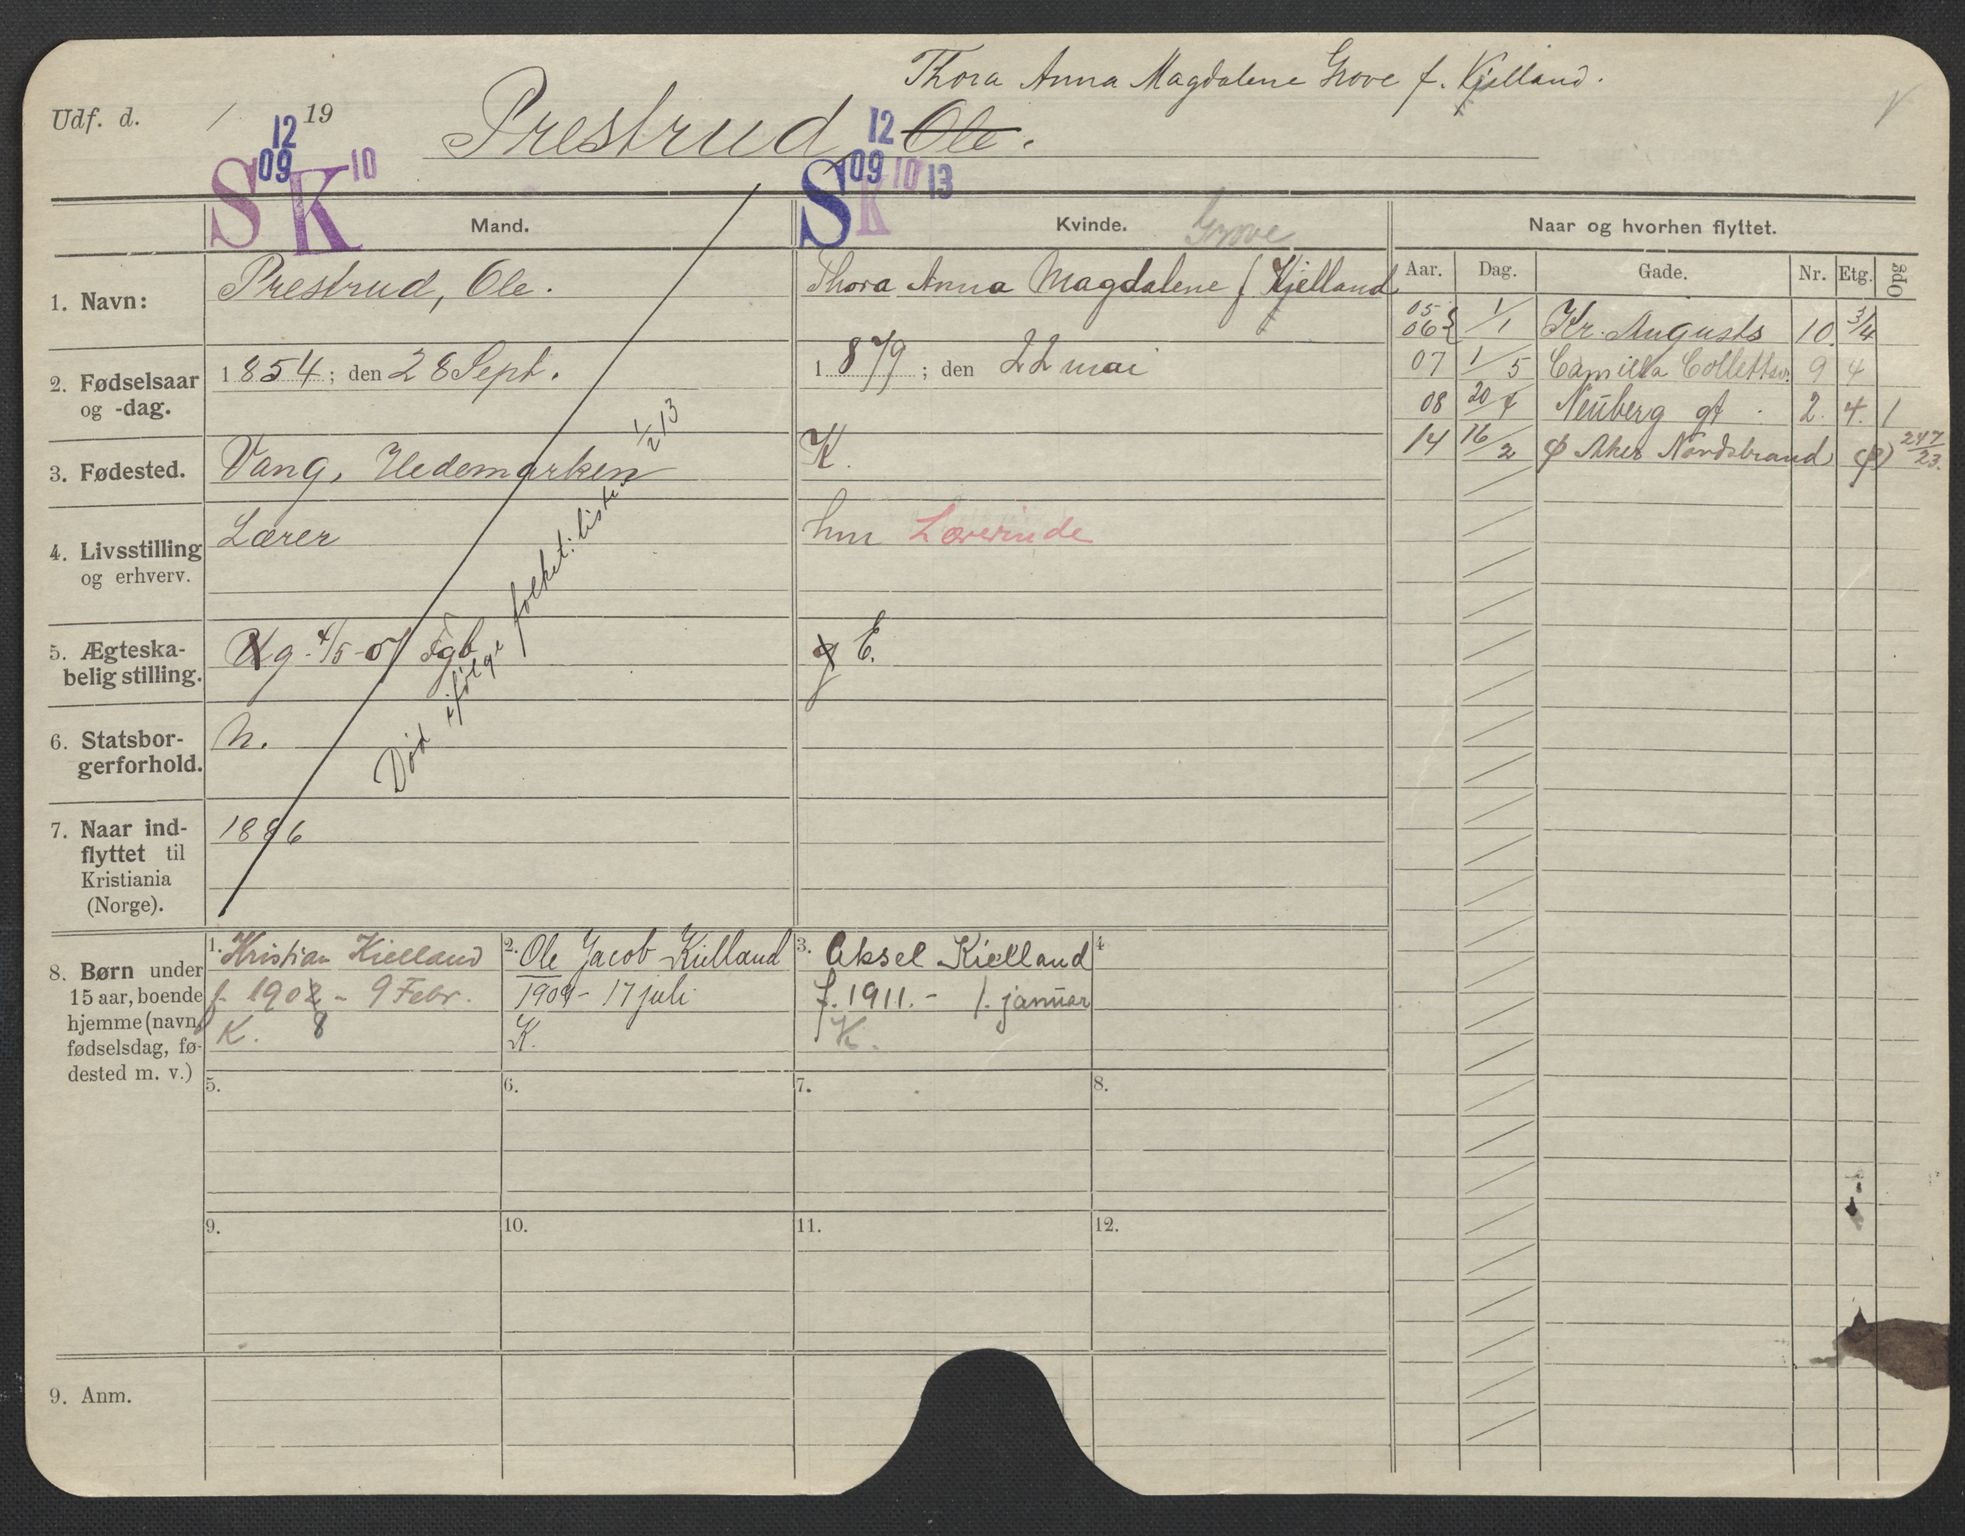 Thora Anna Magdalene Grove f. Kjelland.
Udf. d. / 19
Prestrud, Ole.
12 12
S 09 K 10 S 09 K 10 13
Mand. Kvinde. Grove Naar og hvorhen flyttet.
Aar. Dag. Gade. Nr. Etg. Opg
1. Navn: Prestrud, Ole. Thora Anna Magdalene f Kjelland
05
06 1/1 Kr. Augusts 10. 3/4
2. Fødselsaar og -dag. 1854; den 28 Sept. 1879; den 22 mai
07 1/5 Camilla Collettsv. 9 4
08 20/4 Neuberg gt. 2. 4. 1
3. Fødested. Vang, Hedemarken K.
14 16/2 Ø Aker Nordstrand 247/23.
4. Livsstilling og erhverv. Lærer hm Lærerinde
5. Ægteskabelig stilling. g 4/5-07 Fgb g E.
Død ifølge folket: liste 1/2 13
6. Statsborgerforhold. n.
7. Naar indflyttet til Kristiania (Norge). 1886
8. Børn under 15 aar, boende hjemme (navn, fødselsdag, fødested m. v.)
1. Kristian Kielland
f. 1902 - 9 Febr.
K. 8
2. Ole Jacob Kielland
1909 - 17 juli
K.
3. Aksel Kielland
f. 1911. - 1. januar
K.
4.
5. 6. 7. 8.
9. 10. 11. 12.
9. Anm.